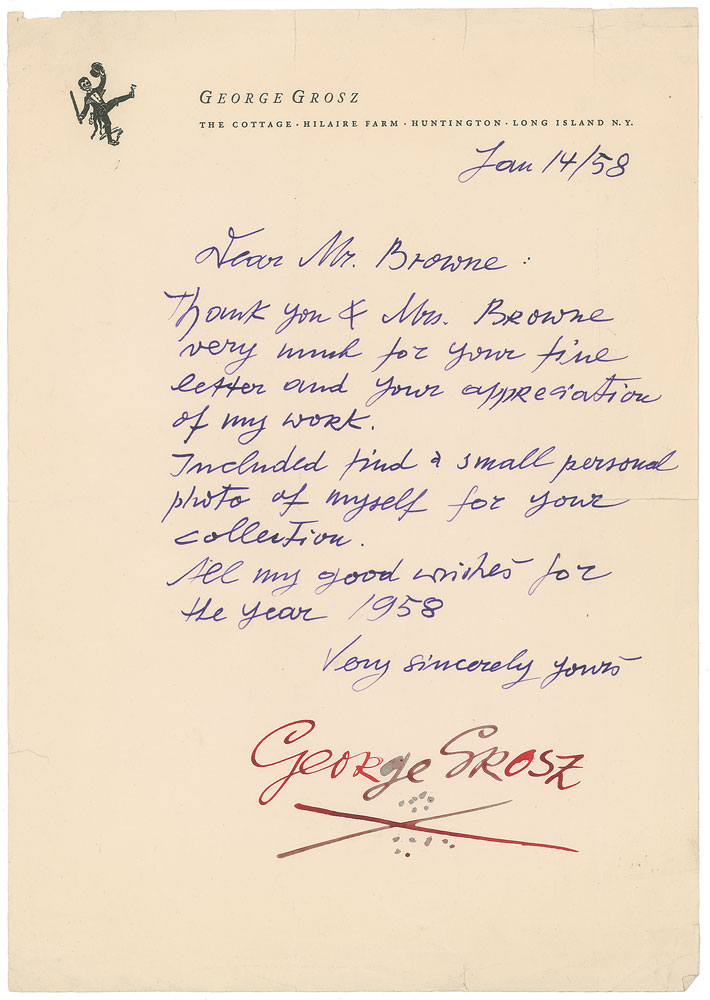 GEORGE GROSZ
THE COTTAGE · HILAIRE FARM · HUNTINGTON · LONG ISLAND N.Y.
Jan 14/58
Dear Mr. Browne :
Thank you & Mrs. Browne
very much for your fine
letter and your appreciation
of my work.
Included find a small personal
photo of myself for your
collection.
All my good wishes for
the year 1958
Very sincerely yours
George Grosz